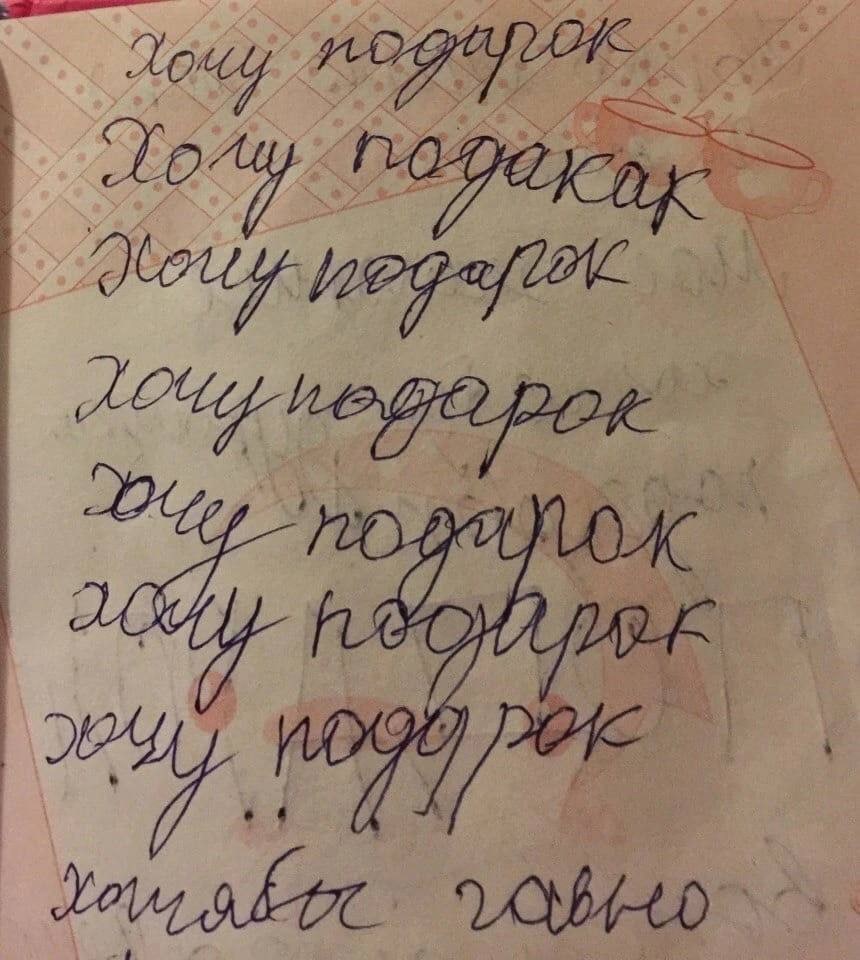 хочу подарок
Хочу подакак
Хочу подарок
хочу подарок
хочу подарок
хочу подарок
хочу подарок
хотябы гавно